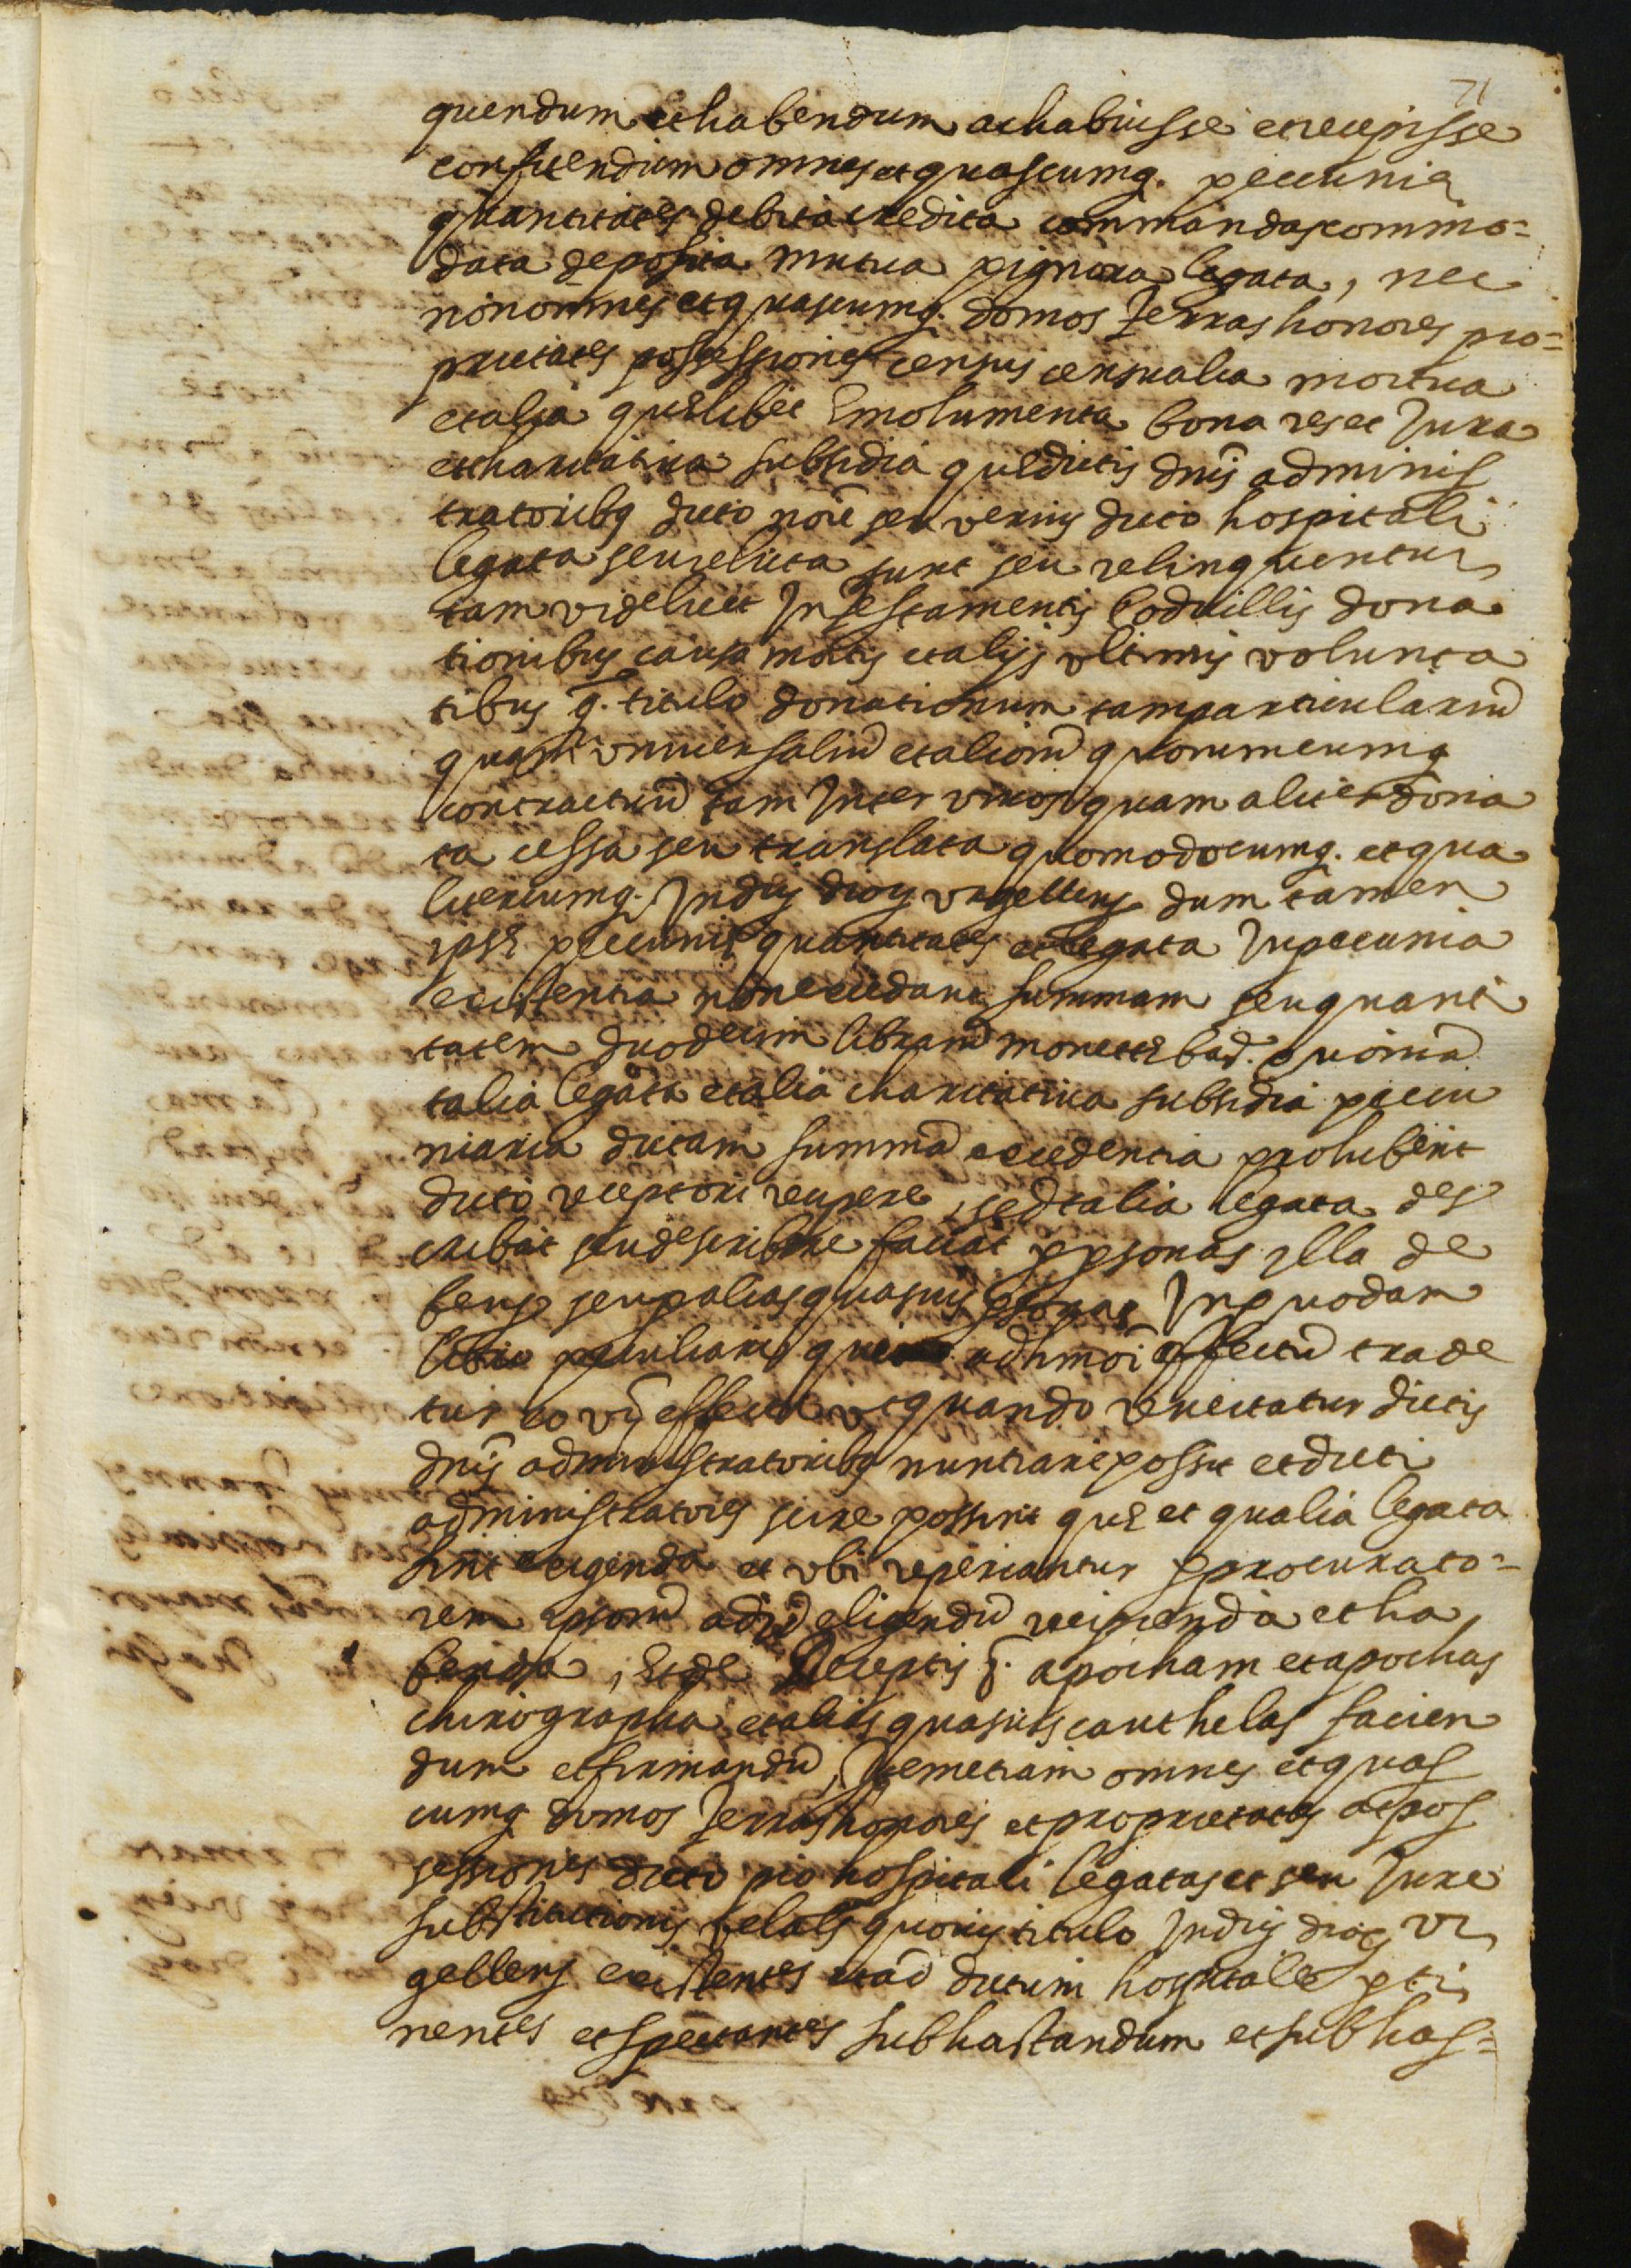 71
quendum et habendum ac habuisse et recepisse
confitendum omnes et quascumq. pecunię
quantitates debita credita commandas commo=
data deposita mutua pignora legata, nec
non omnes et quascumq. domos terras honores pro=
prietates possessiones census censualia mortua
et alia quęlibet Emolumenta bona res et Jura
et charitativa subsidia quę dictis dnis adminis
tratoribq dicto noīe seu verius dicto hospitali
legata seu relicta sunt seu relinquentur
tam videlicet In testamentis Codicillis dona
tionibus causa mortis et alijs ultimis volunta
tibus q. titulo donationum tam particulariū
quam universaliū et aliorū quorumcumq
contractuū tam Inter vivos quam aliter dona
ta cessa seu translata quomodocumq. et qua
litercumq. In dių diocį urgellens dum tamen
ipsę pecunię quantitates et legata In pecunia
existentia non excedant summam seu quanti
tatem duodecim librarū monetę bar. quoniā
talia legata et alia charitativa subsidia pecu
niaria dictam summā excedentia prohibent
dicto receptori recipere, sed talia legata des
cribat seu describere faciat p psonas illa de
bens seu p alias quasvis psonas In quodam
libro peculiari qui ad hmōi effectū trade
tur eo vį effectu ut quando revertatur dictis
dnis administratoribq nuntiari possit et dicti
administratores scire possint quę et qualia legata
sint exigenda et ubi reperiantur p procurato=
rem ipsorū ad id eligendū recipienda et ha
benda, Et de Receptis p. apocham et apochas
chirographa et alias quasvis cauthelas facien
dum et firmandū, Item etiam omnes et quas
cumq domos terras honores et proprietates ac pos
sessiones dicto pio hospitali legatas et seu Jure
substitutionis vel als quovis titulo In dių diocį ur
gellens existentes et ad dictum hospitale pti
nentes et spectantes subhastandum et subhas=